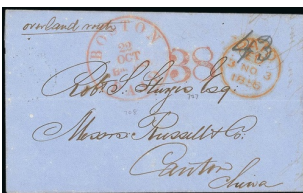 overland route
BOSTON
22
OCT
38
43
Robt. S. Sturgis Esq.
Messrs Russell & Co.
Canton
China